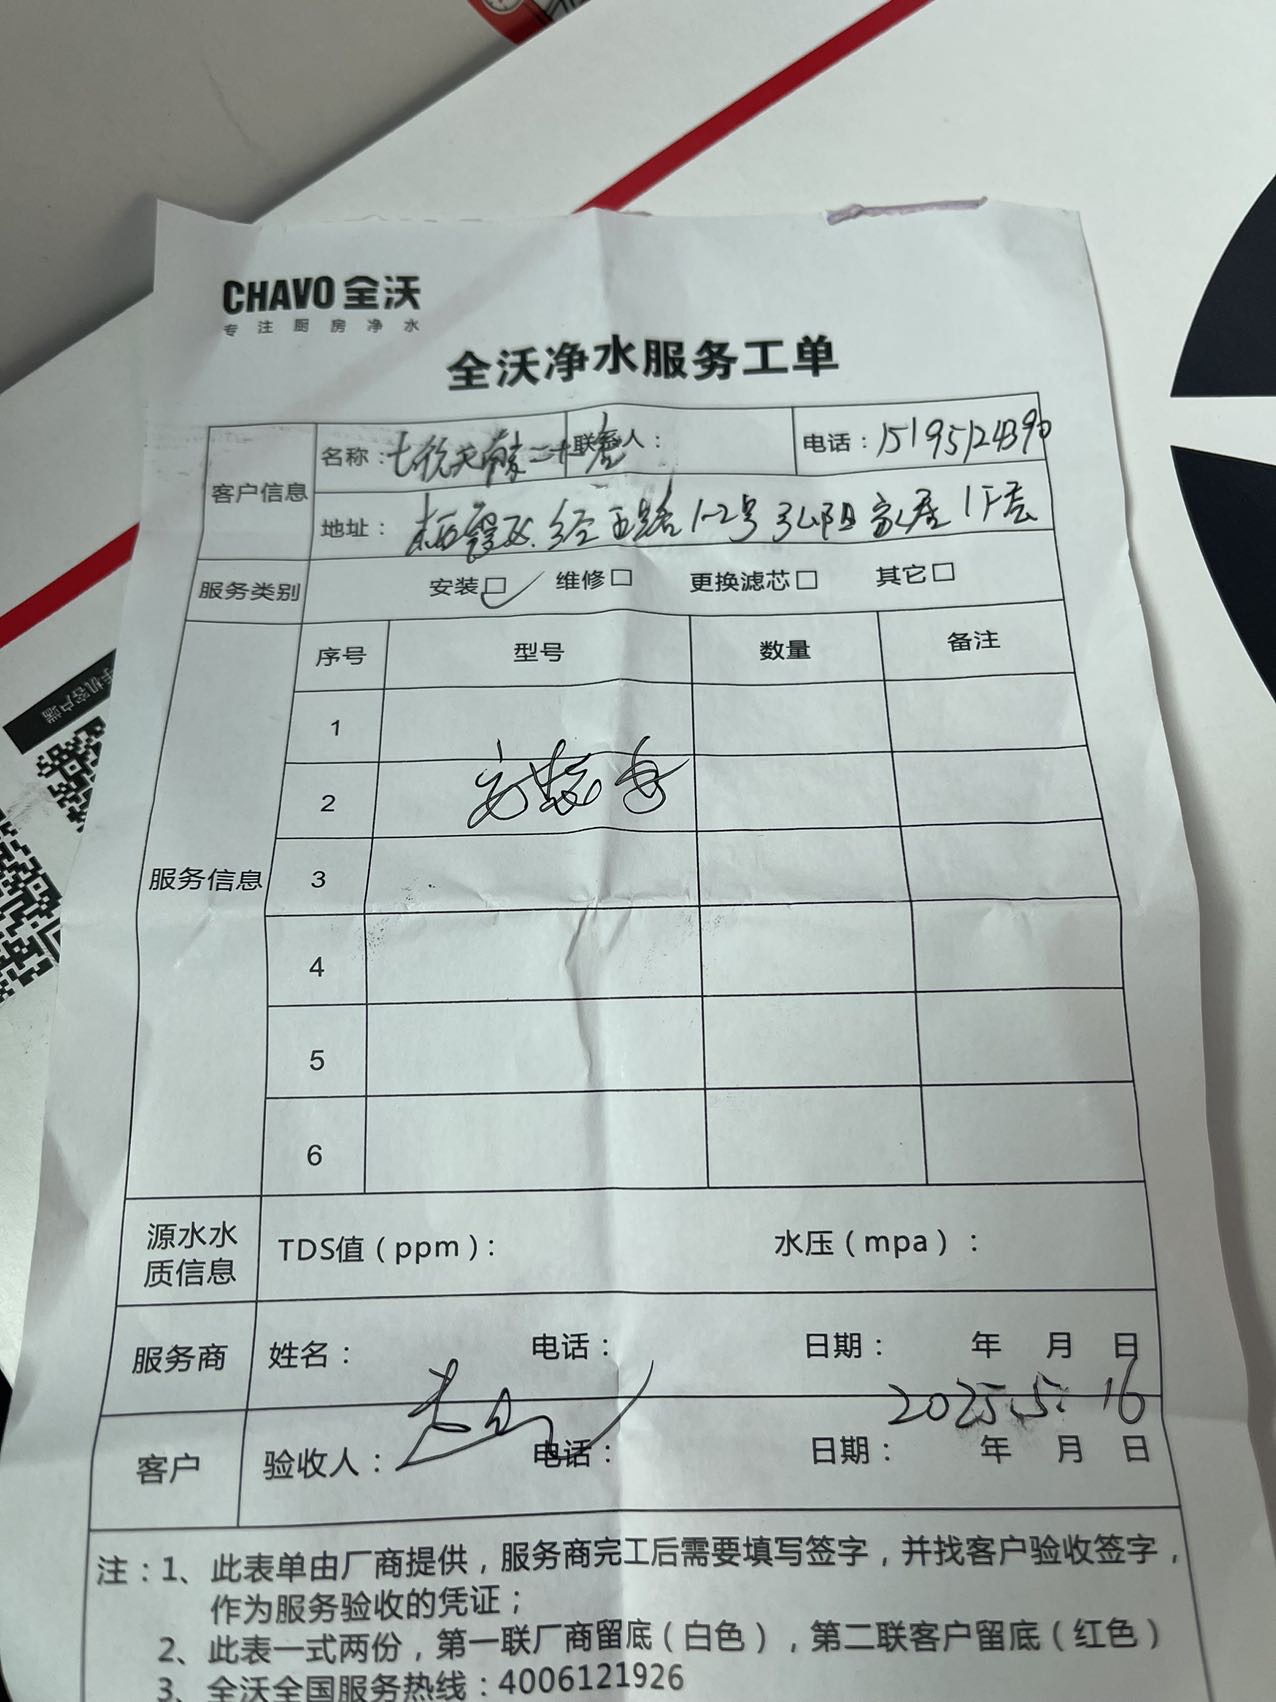 CHAVO 全沃
专注厨房净水
全沃净水服务工单
客户信息
名称：
联系人：
电话：15195124390
地址：栖霞区 经五路1-2号 弘阳家居 1F层
服务类别
安装□✓ 维修□ 更换滤芯□ 其它□
服务信息
序号 型号 数量 备注
1
2 安装
3
4
5
6
源水水质信息
TDS值（ppm）： 水压（mpa）：
服务商 姓名： 电话： 日期： 年 月 日
2025.5.16
客户 验收人： 电话： 日期： 年 月 日
注：1、此表单由厂商提供，服务商完工后需要填写签字，并找客户验收签字，
作为服务验收的凭证；
2、此表一式两份，第一联厂商留底（白色），第二联客户留底（红色）
3、全沃全国服务热线：4006121926
手机客户端